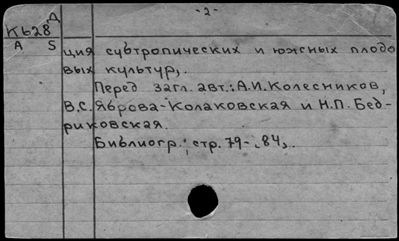 -2-
Д
К628
А S
ция субтропических и южных плодо
вых культур,.
Перед загл. авт.: А.И.Колесников,
В.С.Яброва-Колаковская и Н.П. Бед-
риковская.
Библиогр.: стр. 79-„84„.